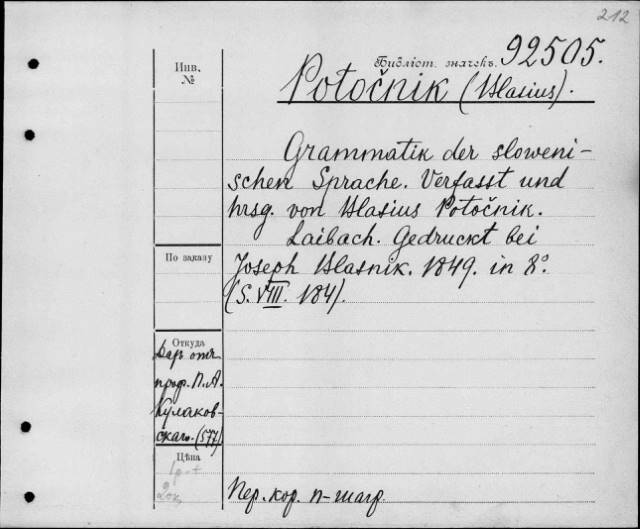 212
Библіот. значекъ. 92505.
Инв.
№
Potočnik (Blasius).
Grammatik der sloweni-
schen Sprache. Verfasst und
hrsg. von Blasius Potočnik.
Laibach. Gedruckt bei
Joseph Blasnik. 1849. in 8°.
(S. VIII. 184).
По заказу
Откуда
Даръ отъ
проф. П. А.
Кулаков-
скаго. (577)
Цѣна
1р.+
20к.
Пер. кор. п-шагр.